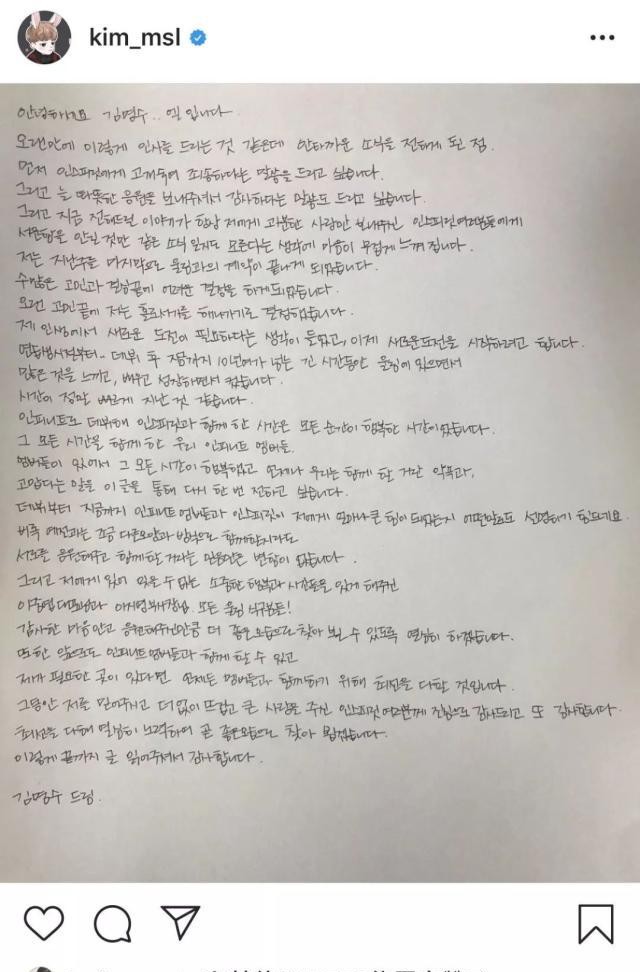 kim_msl
안녕하세요 김명수.. 엘 입니다
오랜만에 이렇게 인사를 드리는 것 같은데 안타까운 소식을 전하게 된 점
먼저 인스피릿에게 고개숙여 죄송하다는 말씀을 드리고 싶습니다.
그리고 늘 따뜻한 응원을 보내주셔서 감사하다는 말씀도 드리고 싶습니다.
그리고 지금 전해드릴 이야기가 항상 저에게 과분한 사랑만 보내주신 인스피릿여러분들에게
서운함을 안길 것만 같은 소식 일지도 모른다는 생각에 마음이 무겁게 느껴집니다.
저는 지난주를 마지막으로 울림과의 계약이 끝나게 되었습니다.
수많은 고민과 결심끝에 어려운 결정을 하게되었습니다.
오랜 고민끝에 저는 홀로서기를 해나가기로 결정했습니다.
제 인생에서 새로운 도전이 필요하다는 생각이 들었고, 이제 새로운도전을 시작하려고 합니다.
연습생시절부터.. 데뷔 후 지금까지 10년여가 넘는 긴 시간동안 울림에 있으면서
많은 것을 느끼고, 배우고 성장하면서 컸습니다.
시간이 정말 빠르게 지난 것 같습니다.
인피니트로 데뷔해 인스피릿과 함께 한 시간은 모든 순간이 행복한 시간이었습니다.
그 모든 시간을 함께 한 우리 인피니트 멤버들.
멤버들이 있어서 그 모든 시간이 행복했고 언제나 우리는 함께 할 거란 약속과,
고맙다는 말을 이 글을 통해 다시 한 번 전하고 싶습니다.
데뷔부터 지금까지 인피니트 멤버들과 인스피릿이 저에게 얼마나 큰 힘이 되었는지 어떤말로도 설명하기 힘드네요.
비록 예전과는 조금 다른모습과 방식으로 함께하겠지만
서로를 응원해주고 함께할거라는 믿음만은 변함이 없습니다.
그리고 저에게 있어 잊을 수 없는 소중한 행복과 시간들을 있게 해주신
이중엽 대표님과 이지연 부사장님. 모든 울림 식구분들!
감사한 마음안고 응원해주신만큼 더 좋은모습으로 찾아 뵐 수 있도록 열심히 하겠습니다.
또한 앞으로도 인피니트멤버들과 함께 할 수 있고
제가 필요한 곳이 있다면 언제든 멤버들과 함께하기 위해 최선을 다할 것입니다.
그동안 저를 믿어주시고 더 없이 뜨겁고 큰 사랑을 주신 인스피릿 여러분께 진심으로 감사드리고 또 감사합니다.
최선을 다해 열심히 노력하여 곧 좋은모습으로 찾아 뵙겠습니다.
이렇게 끝까지 글 읽어주셔서 감사합니다.
김명수 드림.